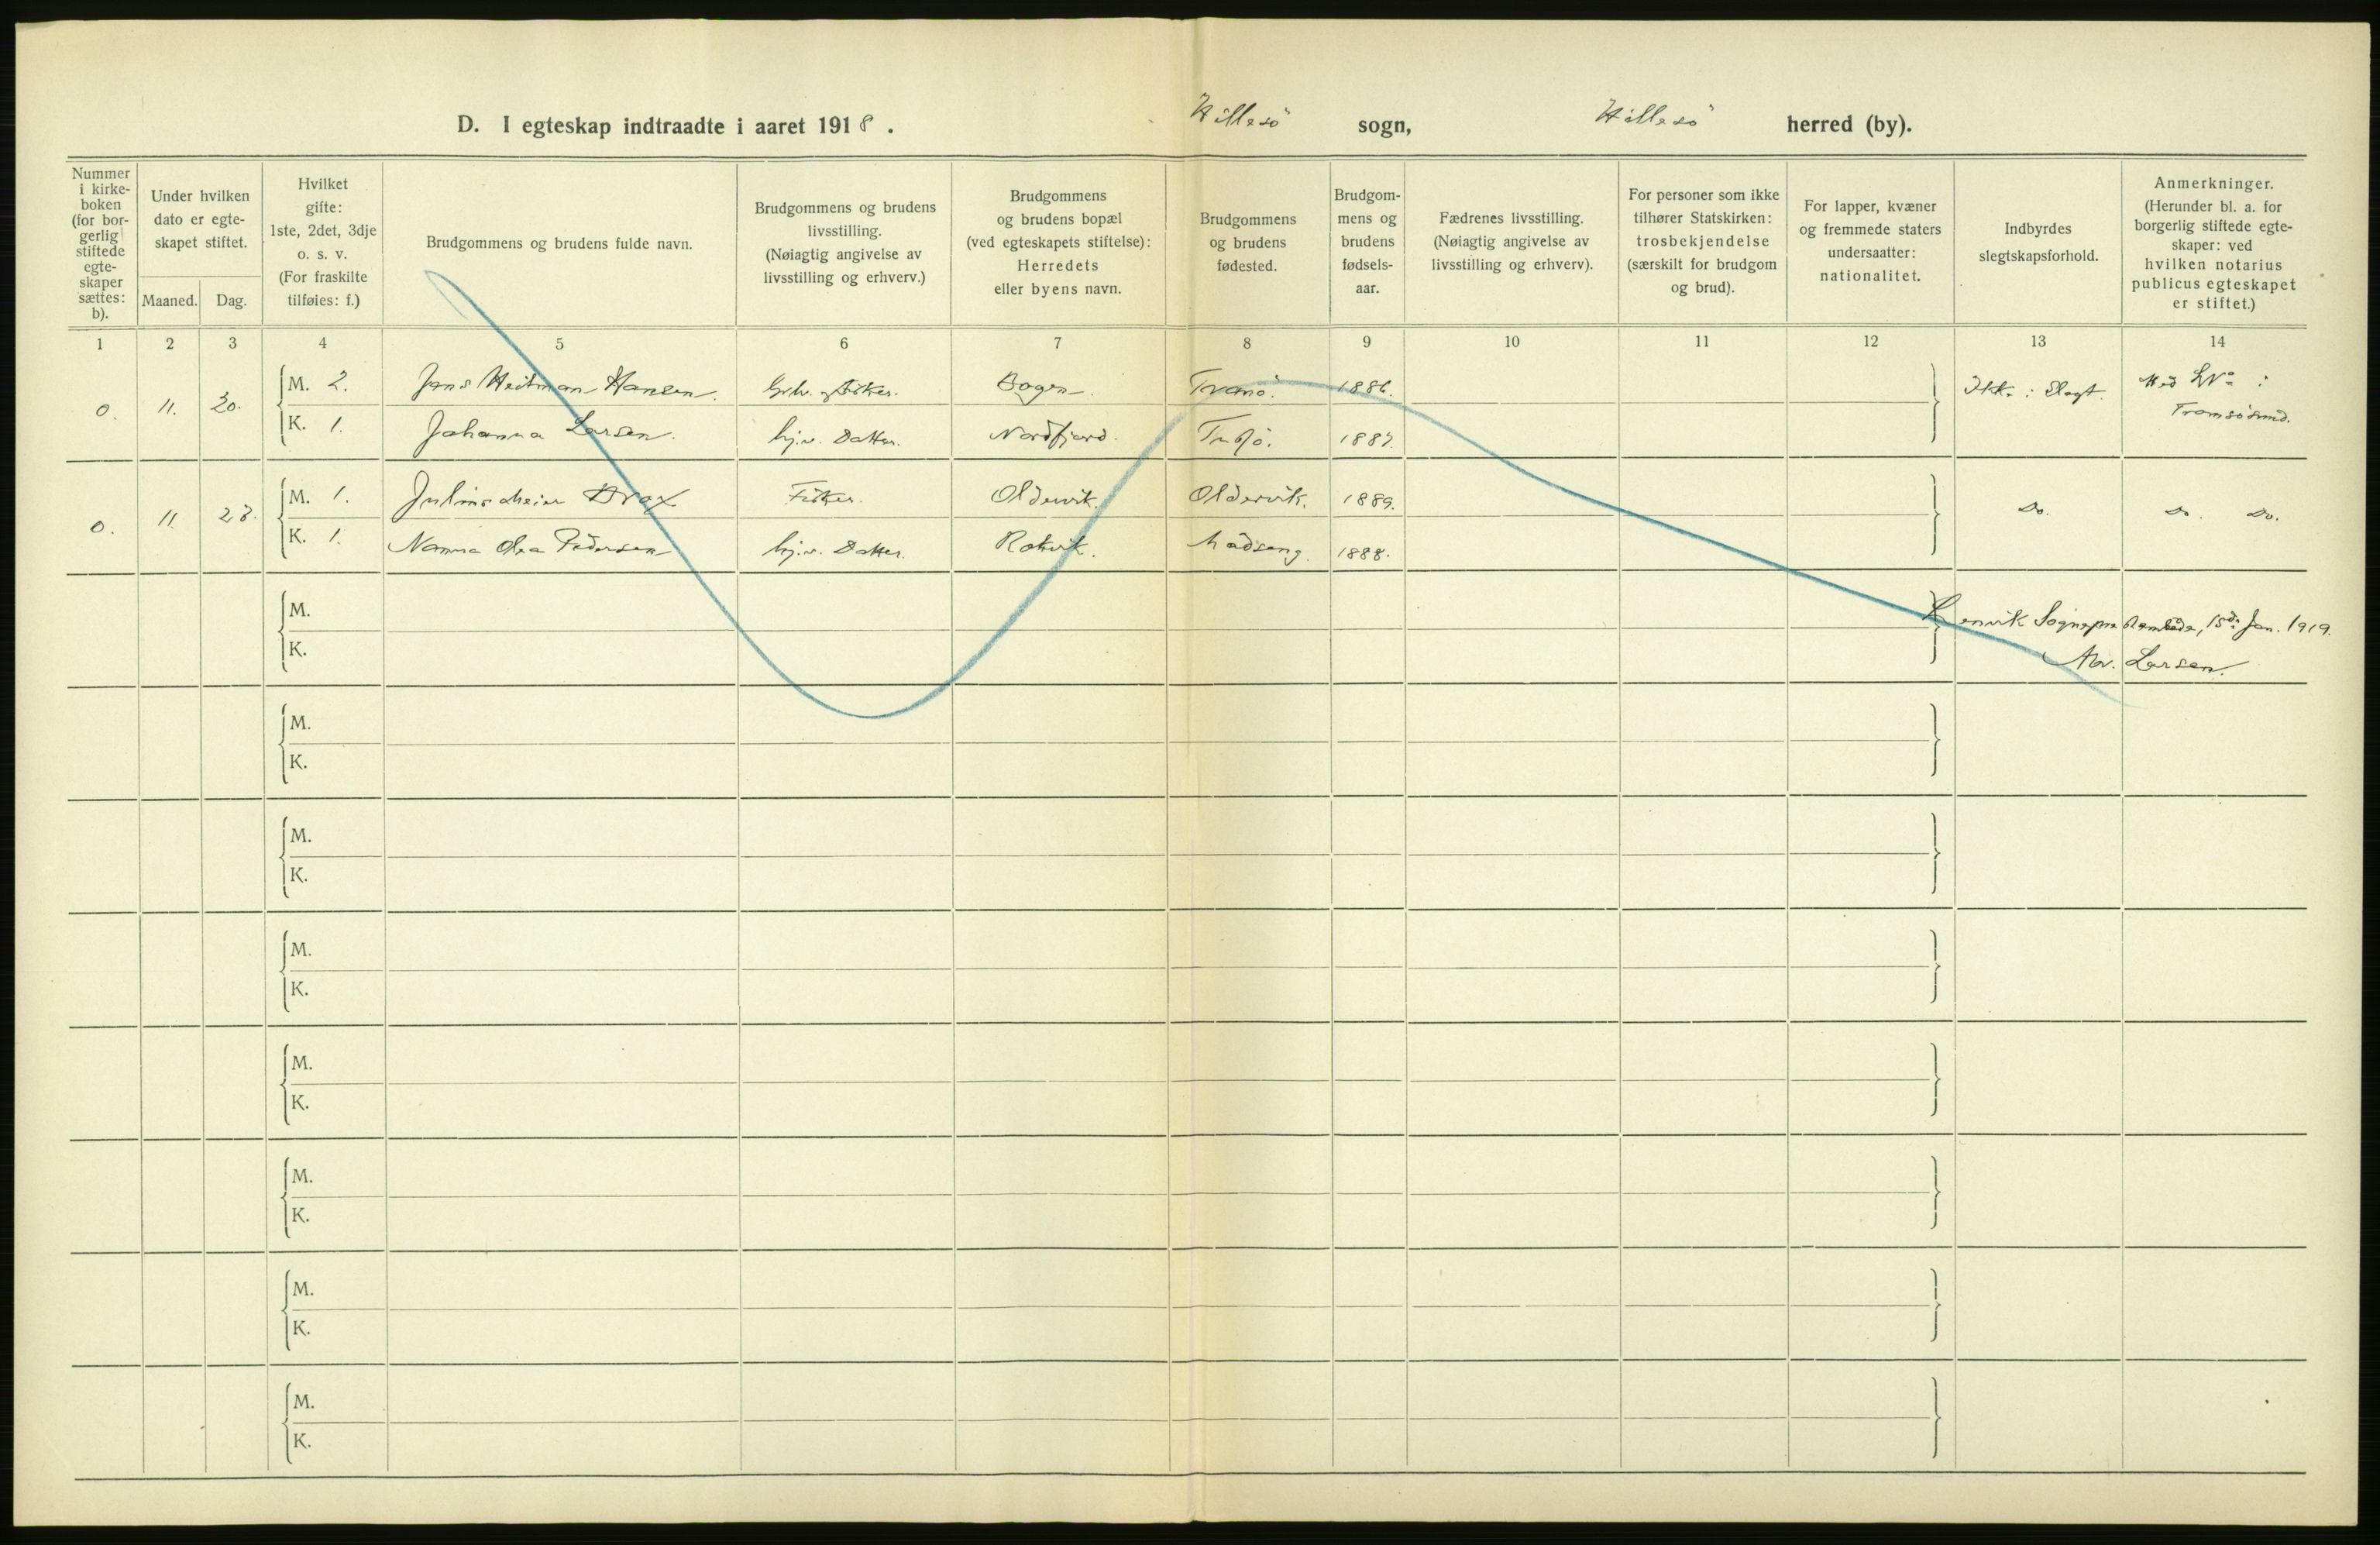 D. I egteskap indtraadte i aaret 1918. Hillesö sogn, Hillesö herred (by).
Nummer
i kirke-
boken
(for bor-
gerlig
stiftede
egte-
skaper
sættes:
b).
Under hvilken
dato er egte-
skapet stiftet.
Maaned. Dag.
Hvilket
gifte:
1ste, 2det, 3dje
o. s. v.
(For fraskilte
tilføies: f.)
Brudgommens og brudens fulde navn.
Brudgommens og brudens
livsstilling.
(Nøiagtig angivelse av
livsstilling og erhverv.)
Brudgommens
og brudens bopæl
(ved egteskapets stiftelse):
Herredets
eller byens navn.
Brudgommens
og brudens
fødested.
Brudgom-
mens og
brudens
fødsels-
aar.
Fædrenes livsstilling.
(Nøiagtig angivelse av
livsstilling og erhverv).
For personer som ikke
tilhører Statskirken:
trosbekjendelse
(særskilt for brudgom
og brud).
For lapper, kvæner
og fremmede staters
undersaatter:
nationalitet.
Indbyrdes
slegtskapsforhold.
Anmerkninger.
(Herunder bl. a. for
borgerlig stiftede egte-
skaper: ved
hvilken notarius
publicus egteskapet
er stiftet.)
1 2 3 4 5 6 7 8 9 10 11 12 13 14
0. 11. 20. M. 2. Jens Heitman Hansen. Fisker. Bogen. Tranö. 1886. Ikke i Slegt.
Tromsösund.
K. 1. Johanna Larsen. hj.v. Datter. Nordfjord. 1887.
0. 11. 23. M. 1. Julius Meier Fisker. Oldervik. Oldervik. 1889. Do. Do. Do.
K. 1. Nanna Olea Pedersen hj.v. Datter. Rotvik. 1888.
M. Lenvik Sogneprestembede, 15de Jan. 1919.
K. Larsen.
M.
K.
M.
K.
M.
K.
M.
K.
M.
K.
M.
K.
M.
K.